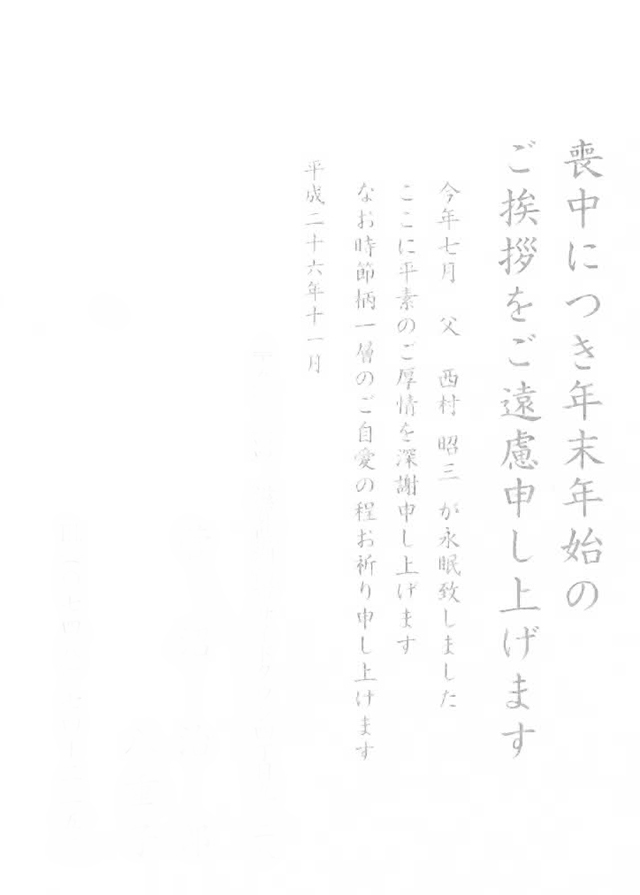 喪中につき年末年始の
ご挨拶をご遠慮申し上げます
今年七月　父　西村　昭三　が永眠致しました
ここに平素のご厚情を深謝申し上げます
なお時節柄一層のご自愛の程お祈り申し上げます
平成二十六年十一月